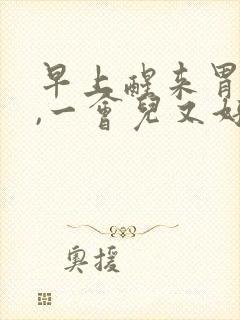 早上醒来胃
,一會兒又好
奥援